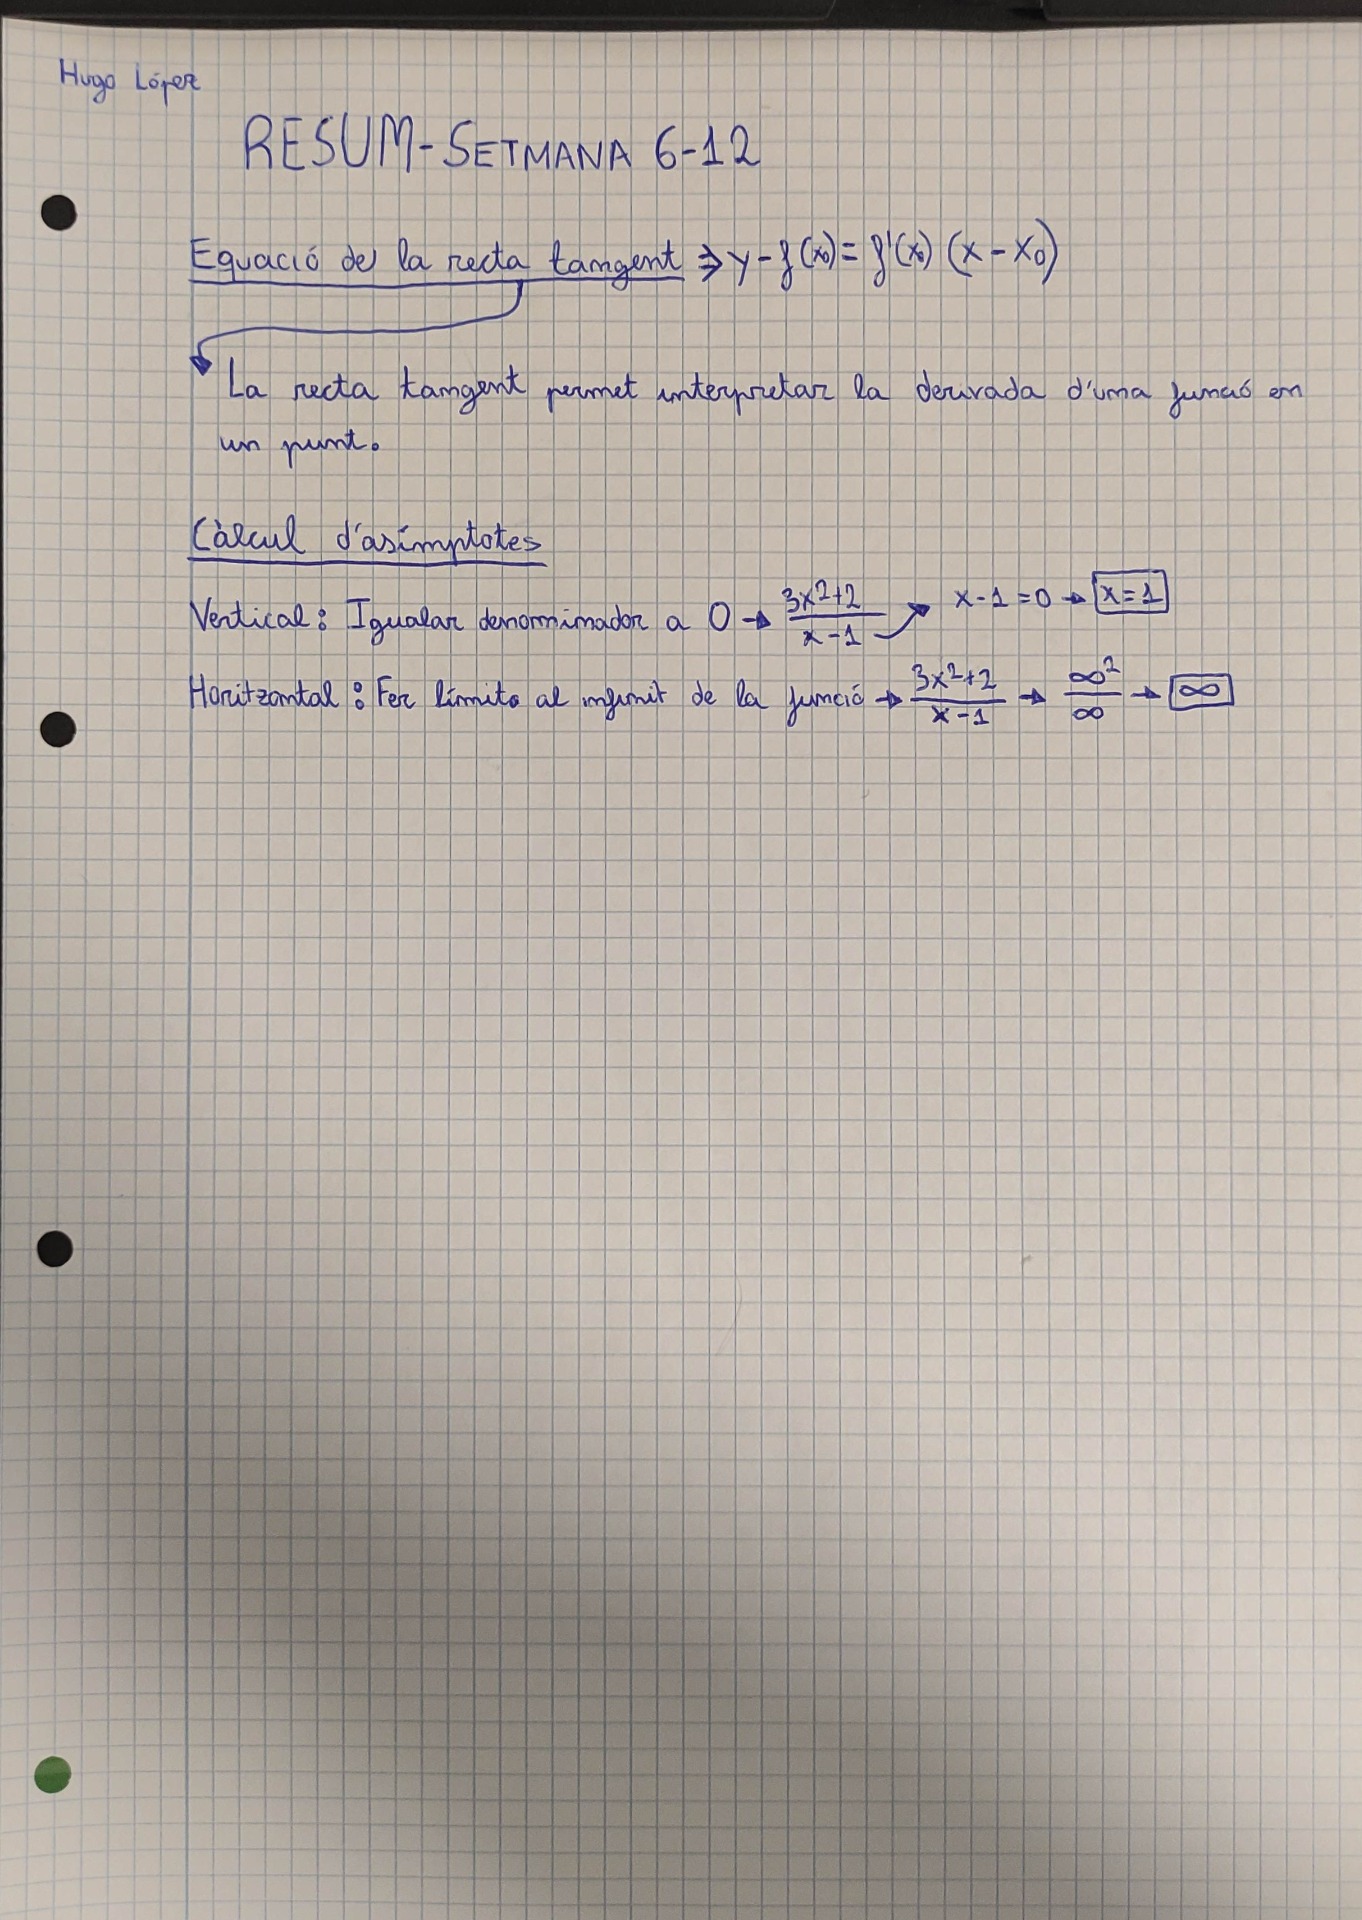 Hugo López
RESUM-SETMANA 6-12
Equació de la recta tangent ⇒ y - f(x₀) = f'(x₀) (x - x₀)
La recta tangent permet interpretar la derivada d'una funció en
un punt.
Càlcul d'asímptotes
Vertical: Igualar denominador a 0 → (3x²+2)/(x-1) → x-1=0 → x=1
Horitzontal: Fer límits al infinit de la funció → (3x²+2)/(x-1) → ∞²/∞ → ∞